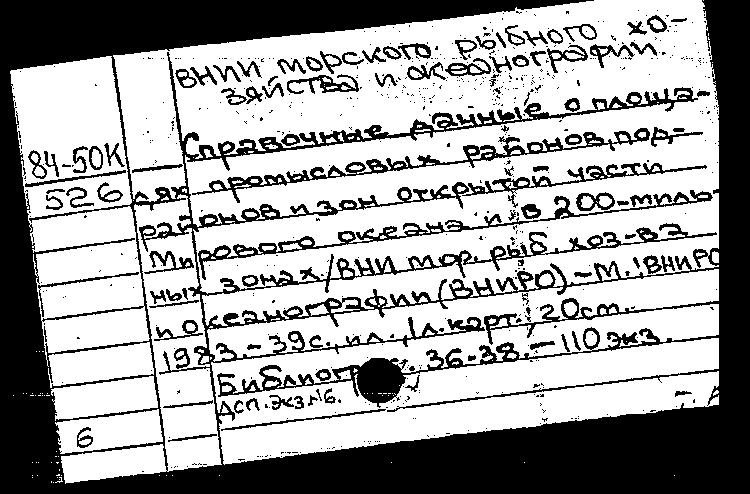 ВНИИ морского рыбного хо-
зяйства и океанографии.
Справочные данные о площа-
84-50К
526
дях промысловых районов, под-
районов и зон открытой части
Мирового океана и в 200-миль-
ных зонах./ВНИ мор. рыб. хоз-ва
и океанографии (ВНИРО).-М.:ВНИРО
1983.-39с., ил., 1л.карт., 20см.
Библиогр. 36-38.-110экз.
ДСП. экз.№6.
6